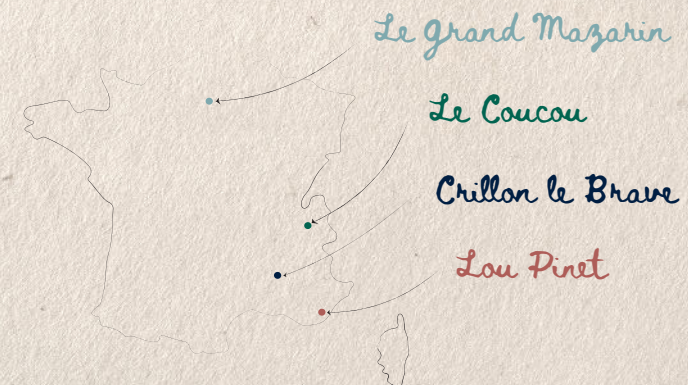 Le Grand Mazarin
Le Coucou
Crillon le Brave
Lou Pinet